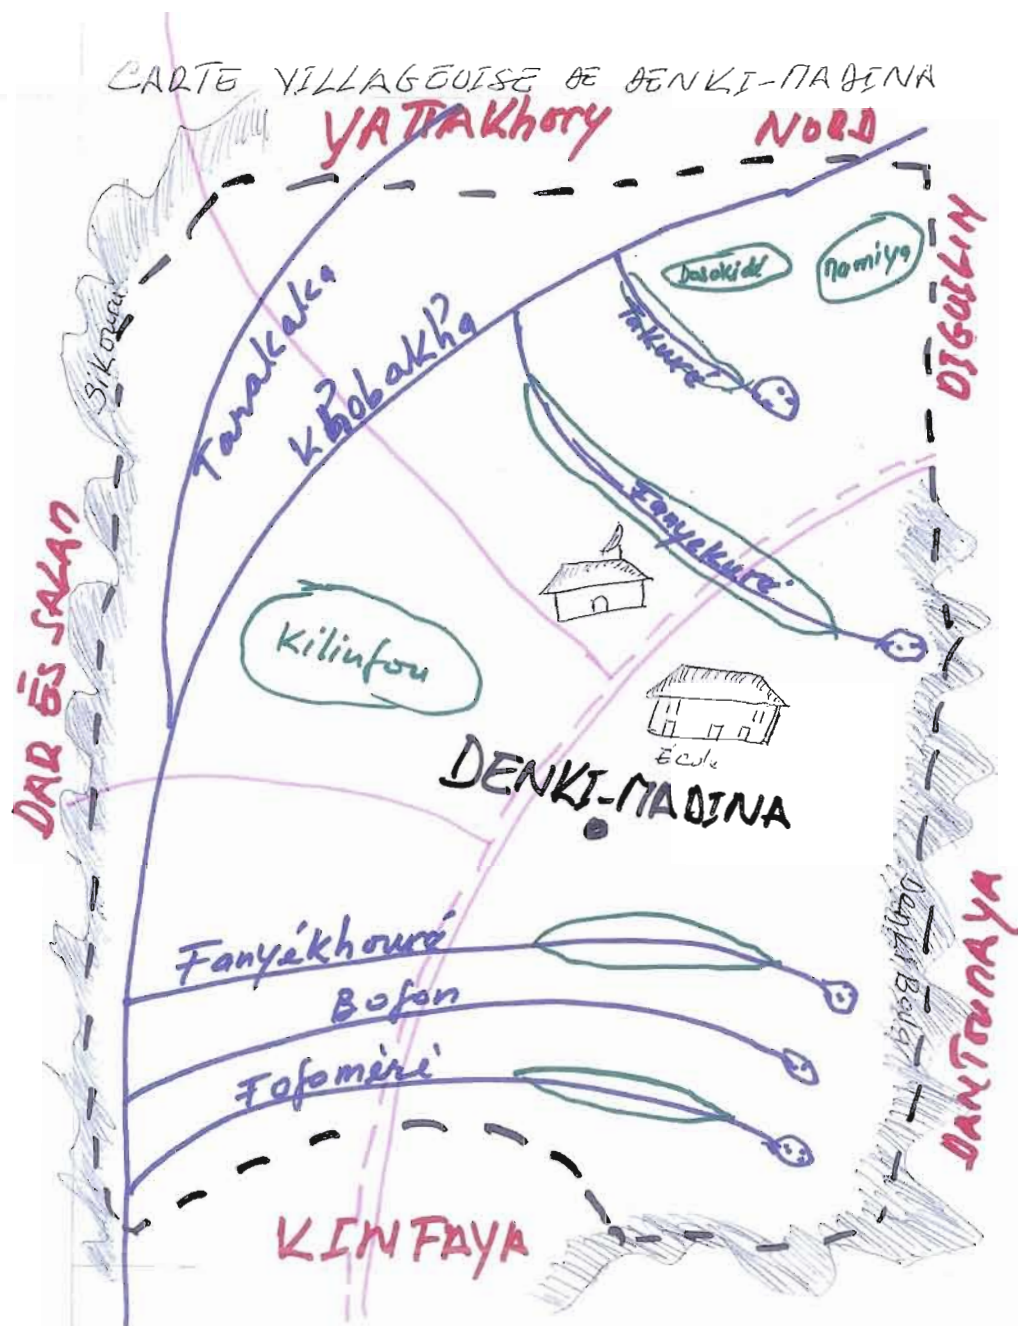 CARTE VILLAGEOISE DE DENKI-MADINA
YATTAKhory
NORD
DIGUILIN
Dasakidé
Mamiya
Takuré
Sikourou
Tansakaka
Khobakha
Fanyekuré
DAR ES SALAM
Kilinfou
École
DENKI-MADINA
Denki Boval
DANTOUMAYA
Fanyékhouré
Bofon
Fofoméré
KINFAYA